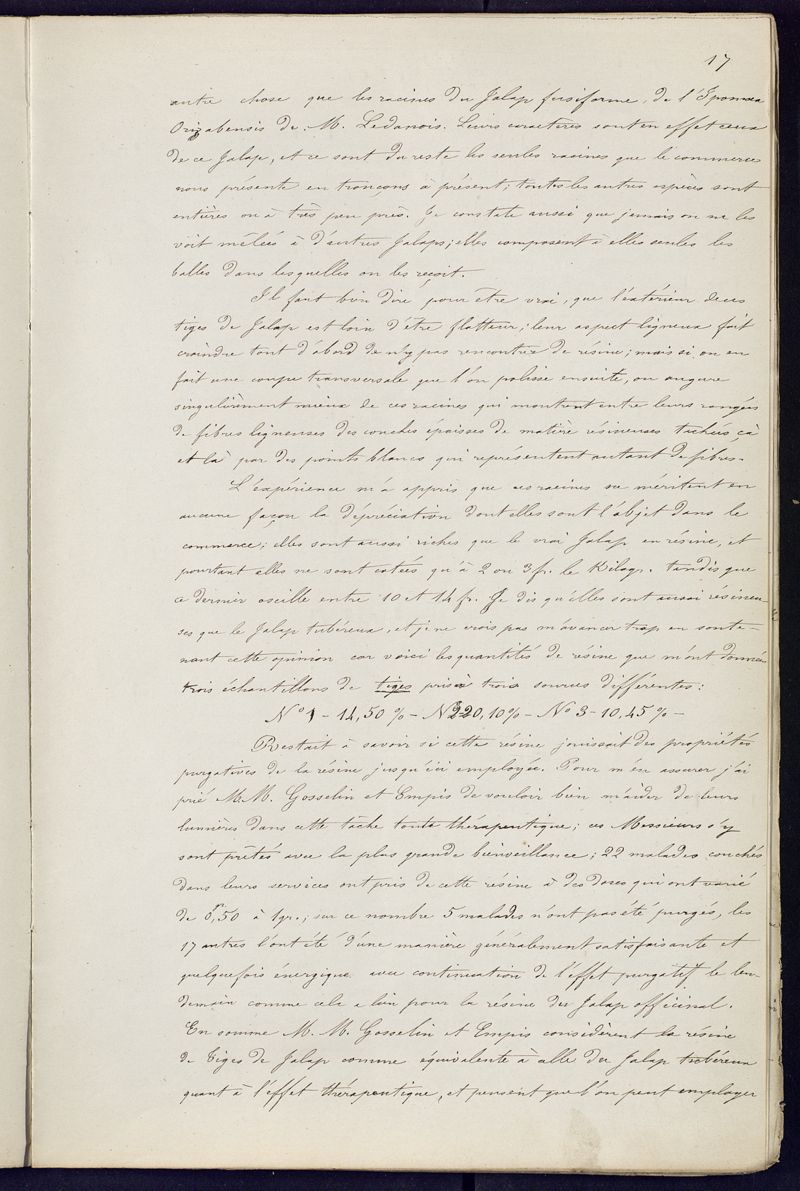 17
autre chose que les racines du Jalap fusiforme, de l'Ipomœa
Orizabensis de M. Ledanois. Leurs caractères sont en effet ceux
de ce Jalap, et ce sont du reste les seules racines que le commerce
nous présente en tronçons à présent; toutes les autres espèces sont
entières ou à très peu près. Je constate aussi que jamais on ne les
voit mêlées à d'autres Jalaps; elles composent à elles seules les
balles dans lesquelles on les reçoit.
Il faut bien dire pour être vrai, que l'extérieur de ces
tiges de Jalap est loin d'être flatteur; leur aspect ligneux fait
craindre tout d'abord de n'y pas rencontrer de résine; mais si on en
fait une coupe transversale que l'on polisse ensuite, on augure
singulièrement mieux de ces racines qui montrent entre leurs rangées
de fibres ligneuses des couches épaisses de matière résineuses tachées çà
et là par des points blancs qui représentent autant de fibres.
L'expérience m'a appris que ces racines ne méritent en
aucune façon la dépréciation dont elles sont l'objet dans le
commerce; elles sont aussi riches que le vrai Jalap en résine, et
pourtant elles ne sont cotées qu'à 2 ou 3 fr. le Kilogr. tandis que
ce dernier oscille entre 10 et 14 fr. Je dis qu'elles sont aussi résineu-
ses que le Jalap tubéreux, et je ne crois pas m'avancer trop en soute-
nant cette opinion car voici les quantités de résine que m'ont données
trois échantillons de tiges pris à trois sources différentes:
No 1 - 14,50 % - No 2 20,10 % - No 3 - 10,45 % -
Restait à savoir si cette résine jouissait des propriétés
purgatives de la résine jusqu'ici employée. Pour m'en assurer j'ai
prié M.M. Gosselin et Empis de vouloir bien m'aider de leurs
lumières dans cette tâche toute thérapeutique; ces Messieurs s'y
sont prêtés avec la plus grande bienveillance; 22 malades couchés
dans leurs services ont pris de cette résine à des doses qui ont varié
de 0,50 à 1 gr.; sur ce nombre 5 malades n'ont pas été purgés, les
17 autres l'ont été d'une manière généralement satisfaisante et
quelquefois énergique avec continuation de l'effet purgatif le len-
demain comme cela a lieu pour la résine du Jalap officinal.
En somme M. M. Gosselin et Empis considèrent la résine
de Tiges de Jalap comme équivalente à celle du Jalap tubéreux
quant à l'effet thérapeutique, et pensent que l'on peut employer